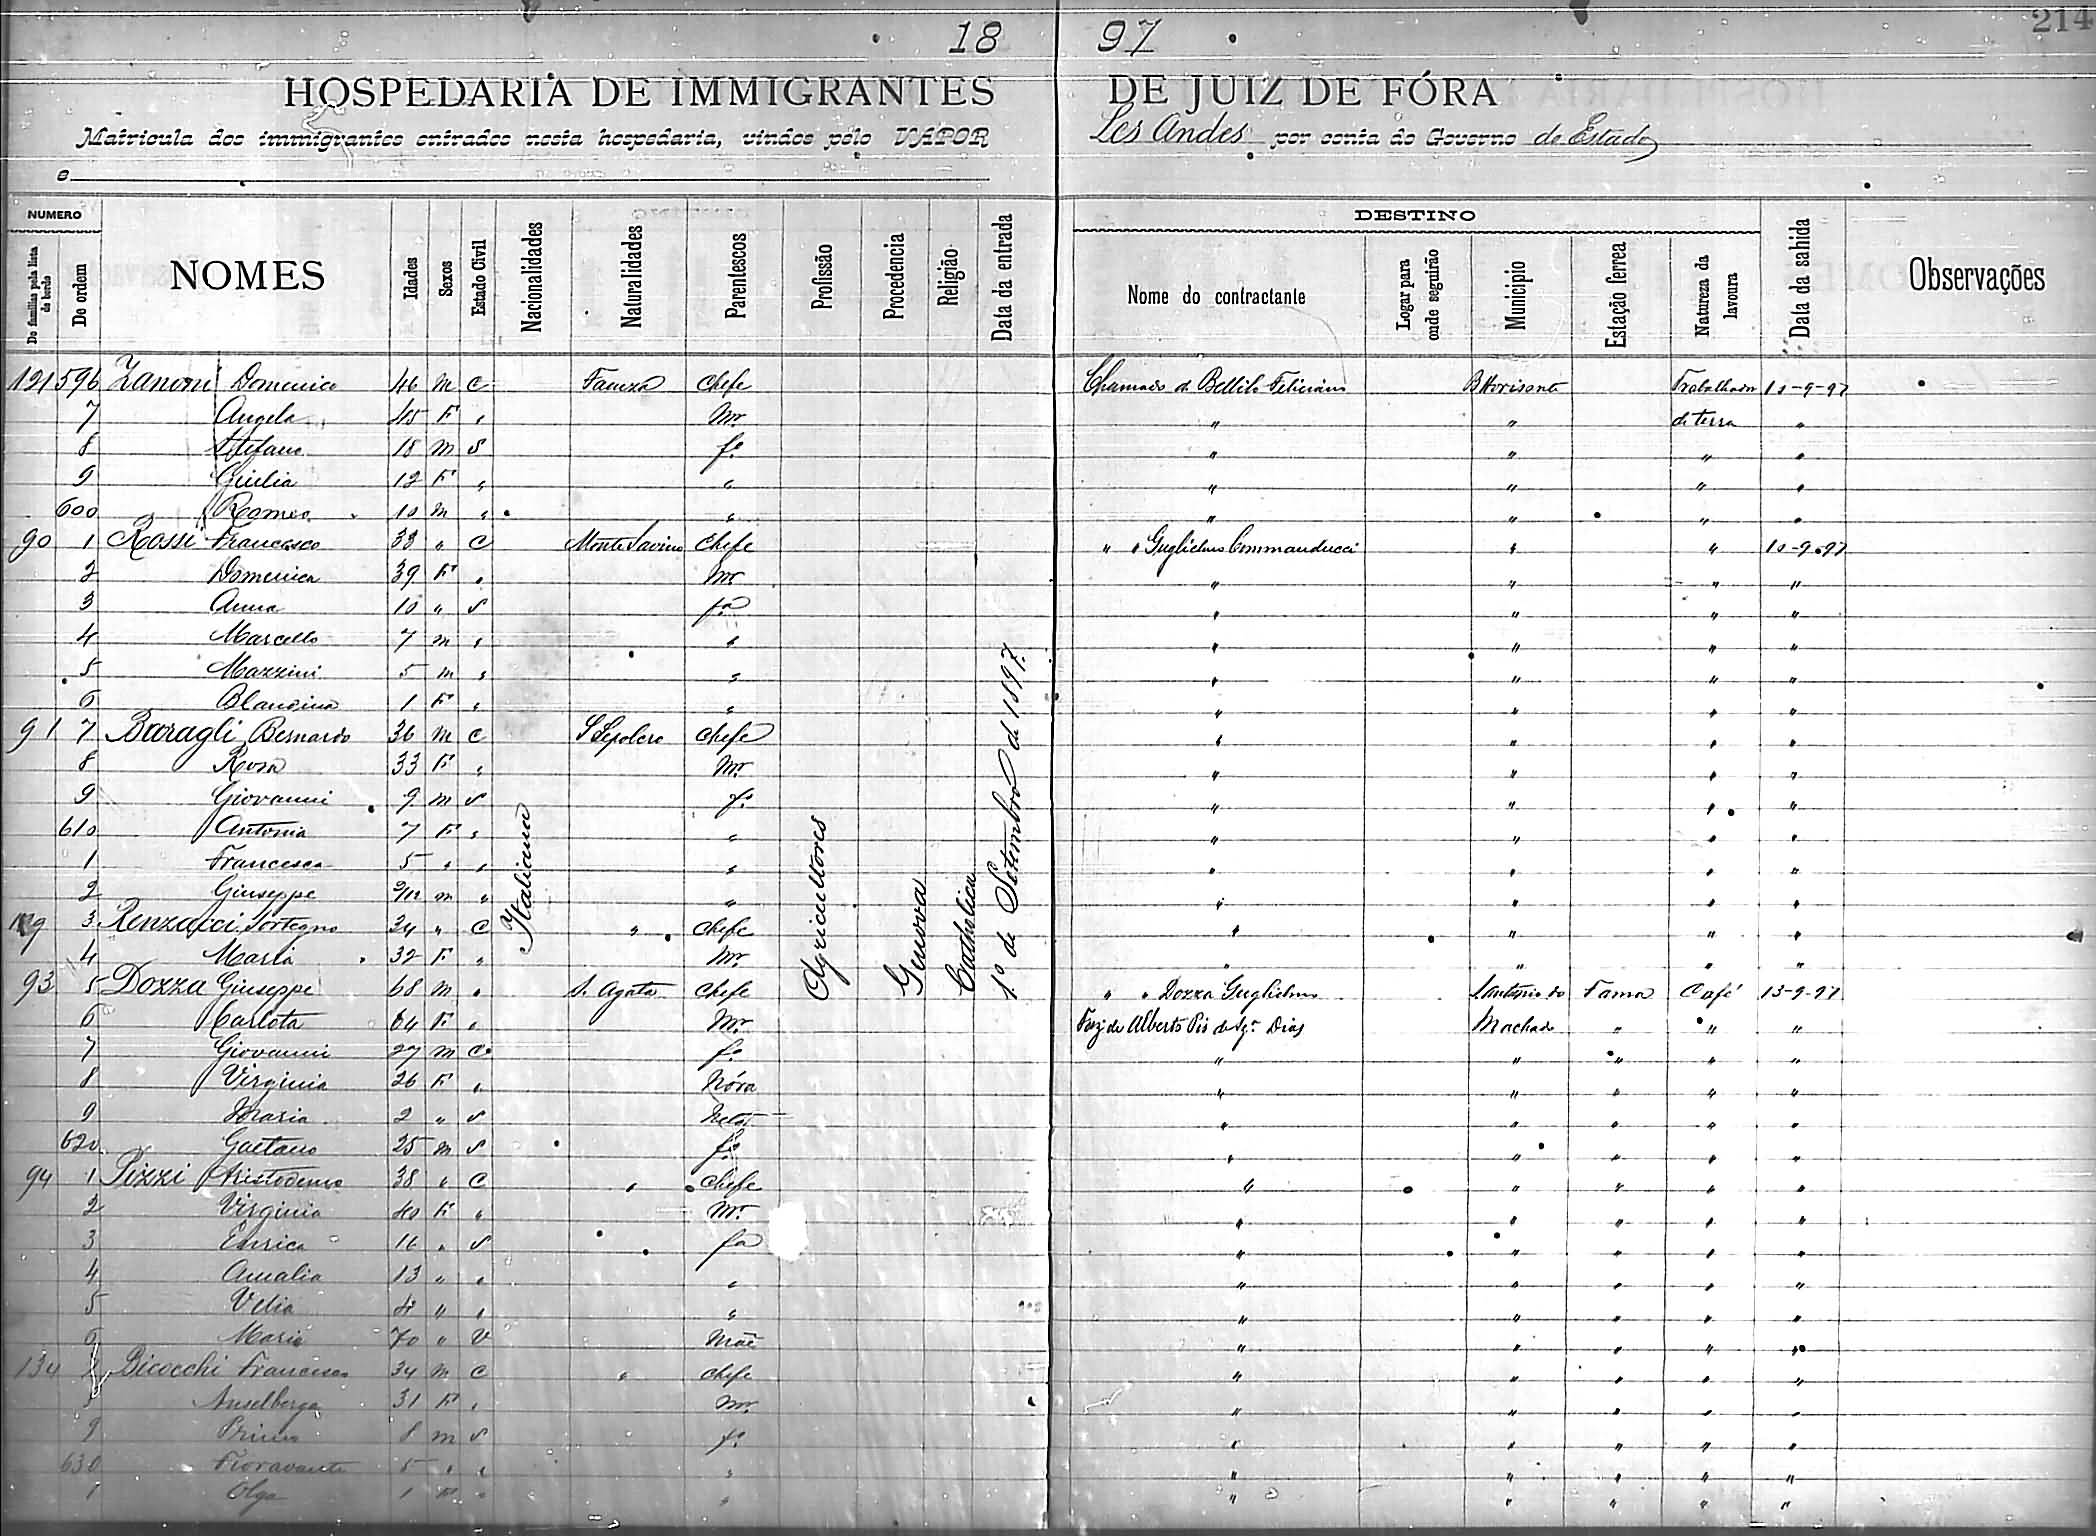 214
18 97
HOSPEDARIA DE IMMIGRANTES DE JUIZ DE FÓRA
Matricula dos immigrantes entrados nesta hospedaria, vindos pelo VAPOR Les Andes por conta do Governo do Estado
e
NUMERO DESTINO
De familias pela lista de bordo De ordem NOMES Idades Sexos Estado Civil Nacionalidades Naturalidades Parentescos Profissão Procedencia Religião Data da entrada Nome do contractante Logar para onde seguirão Municipio Estação ferrea Natureza da lavoura Data da sahida Observações
Italiana Agricultores Genova Catholica 1º de Setembro de 1897
121 596 Zanoni Domenico 46 m C Faenza Chefe Chamado de Bellilo Feliciano BHorisonte Trabalhador 10-9-97
7 Angela 45 F " Mr. " " de terra "
8 Stefano 18 m S fº " " " "
9 Giulia 12 F " " " " " "
600 Romeo 10 m " " " " " "
90 1 Rossi Francesco 38 " C Monte Savino Chefe " " Guglielmo Commanducci " " 10-9-97
2 Domenica 39 F " Mr " " " "
3 Anna 10 " S fª " " " "
4 Marcello 7 m " " " " " "
5 Mazzini 5 m " " " " " "
6 Blandina 1 F " " " " " "
91 7 Baragli Bernardo 36 m C S Sepolcro Chefe " " " "
8 Rosa 33 F " Mr. " " " "
9 Giovanni 9 m S fº " " " "
610 Antonia 7 F " " " " " "
1 Francesca 5 " " " " " " "
2 Giuseppe 9/12 m " " " " " "
3 Renzacci Sortegno 34 " C " Chefe " " " "
4 Maria 32 F " Mr. " " " "
93 5 Dozza Giuseppe 68 m " S. Agata Chefe " " Dozza Guglielmo S.Antonio do Fama Café 13-9-97
6 Carlota 64 F " Mr. Faz.da Alberto Pis de Sz.ª Dias Machado " " "
7 Giovanni 27 m C fº " " " " "
8 Virginia 26 F " Nóra " " " " "
9 Maria 2 " S Neta " " " " "
620 Gaetano 25 m S fº " " " " "
94 1 Pizzi Aristodemo 38 " C " Chefe " " " " "
2 Virginia 40 F " Mr. " " " " "
3 Enrica 16 " S fª " " " " "
4 Amalia 13 " " " " " " " "
5 Velia 4 " " " " " " " "
6 Maria 70 " V Mãe " " " " "
134 Bicocchi Francesco 34 m C " Chefe " " " " "
Anselberga 31 F " Mr. " " " " "
9 Primo 8 m S fº " " " " "
630 Fioravante 5 " " " " " " " "
1 Olga 1 F " " " " " " "